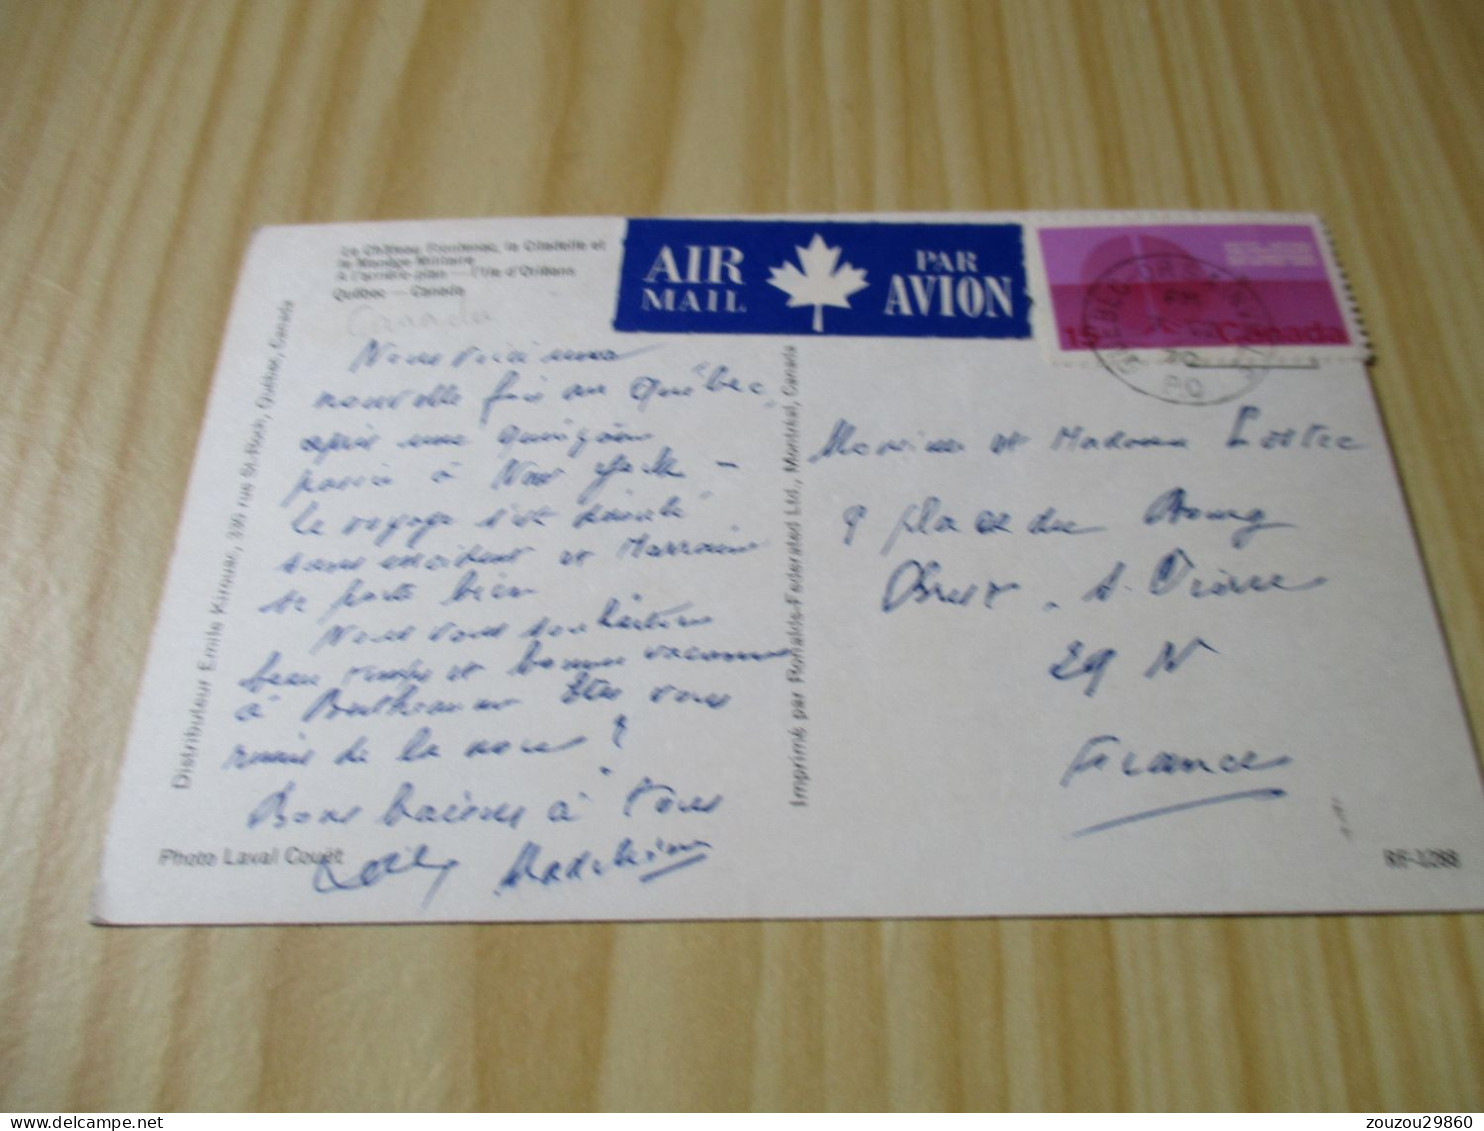 Le Château Frontenac, la Citadelle et
le Manège Militaire
A l'arrière-plan — l'Ile d'Orléans
Québec — Canada
Canada
AIR MAIL
PAR AVION
15 Canada
PQ
Nous voici une
nouvelle fois au Québec,
après une quinzaine
passée à New York –
Le voyage s'est déroulé
sans incident et Marraine
se porte bien
Nous vous souhaitons
beau temps et bonnes vacances
à Êtes vous
remis de la noce ?
Bons baisers à tous
Distributeur Emile Kirouac, 339 rue St-Roch, Québec, Canada
Photo Laval Couët
Imprimé par Ronalds-Federated Ltd., Montréal, Canada
Monsieur et Madame
9 place du Bourg
29 N
France
RF-1288
zouzou29860